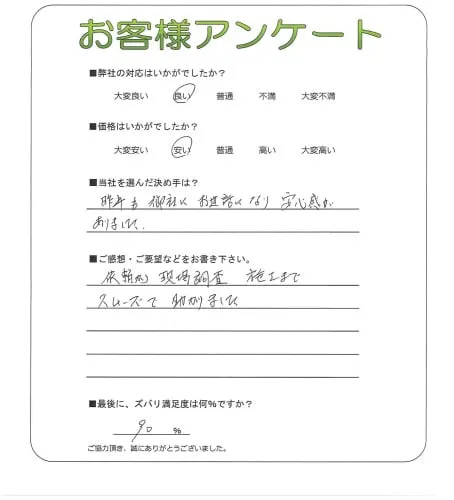 お客様アンケート
■弊社の対応はいかがでしたか？
大変良い 良い 普通 不満 大変不満
■価格はいかがでしたか？
大変安い 安い 普通 高い 大変高い
■当社を選んだ決め手は？
昨年も 御社に お世話になり 安心感が
ありました.
■ご感想・ご要望などをお書き下さい。
依頼から 現場調査 施工まで
スムーズで 助かりました
■最後に、ズバリ満足度は何％ですか？
90 ％
ご協力頂き、誠にありがとうございました。